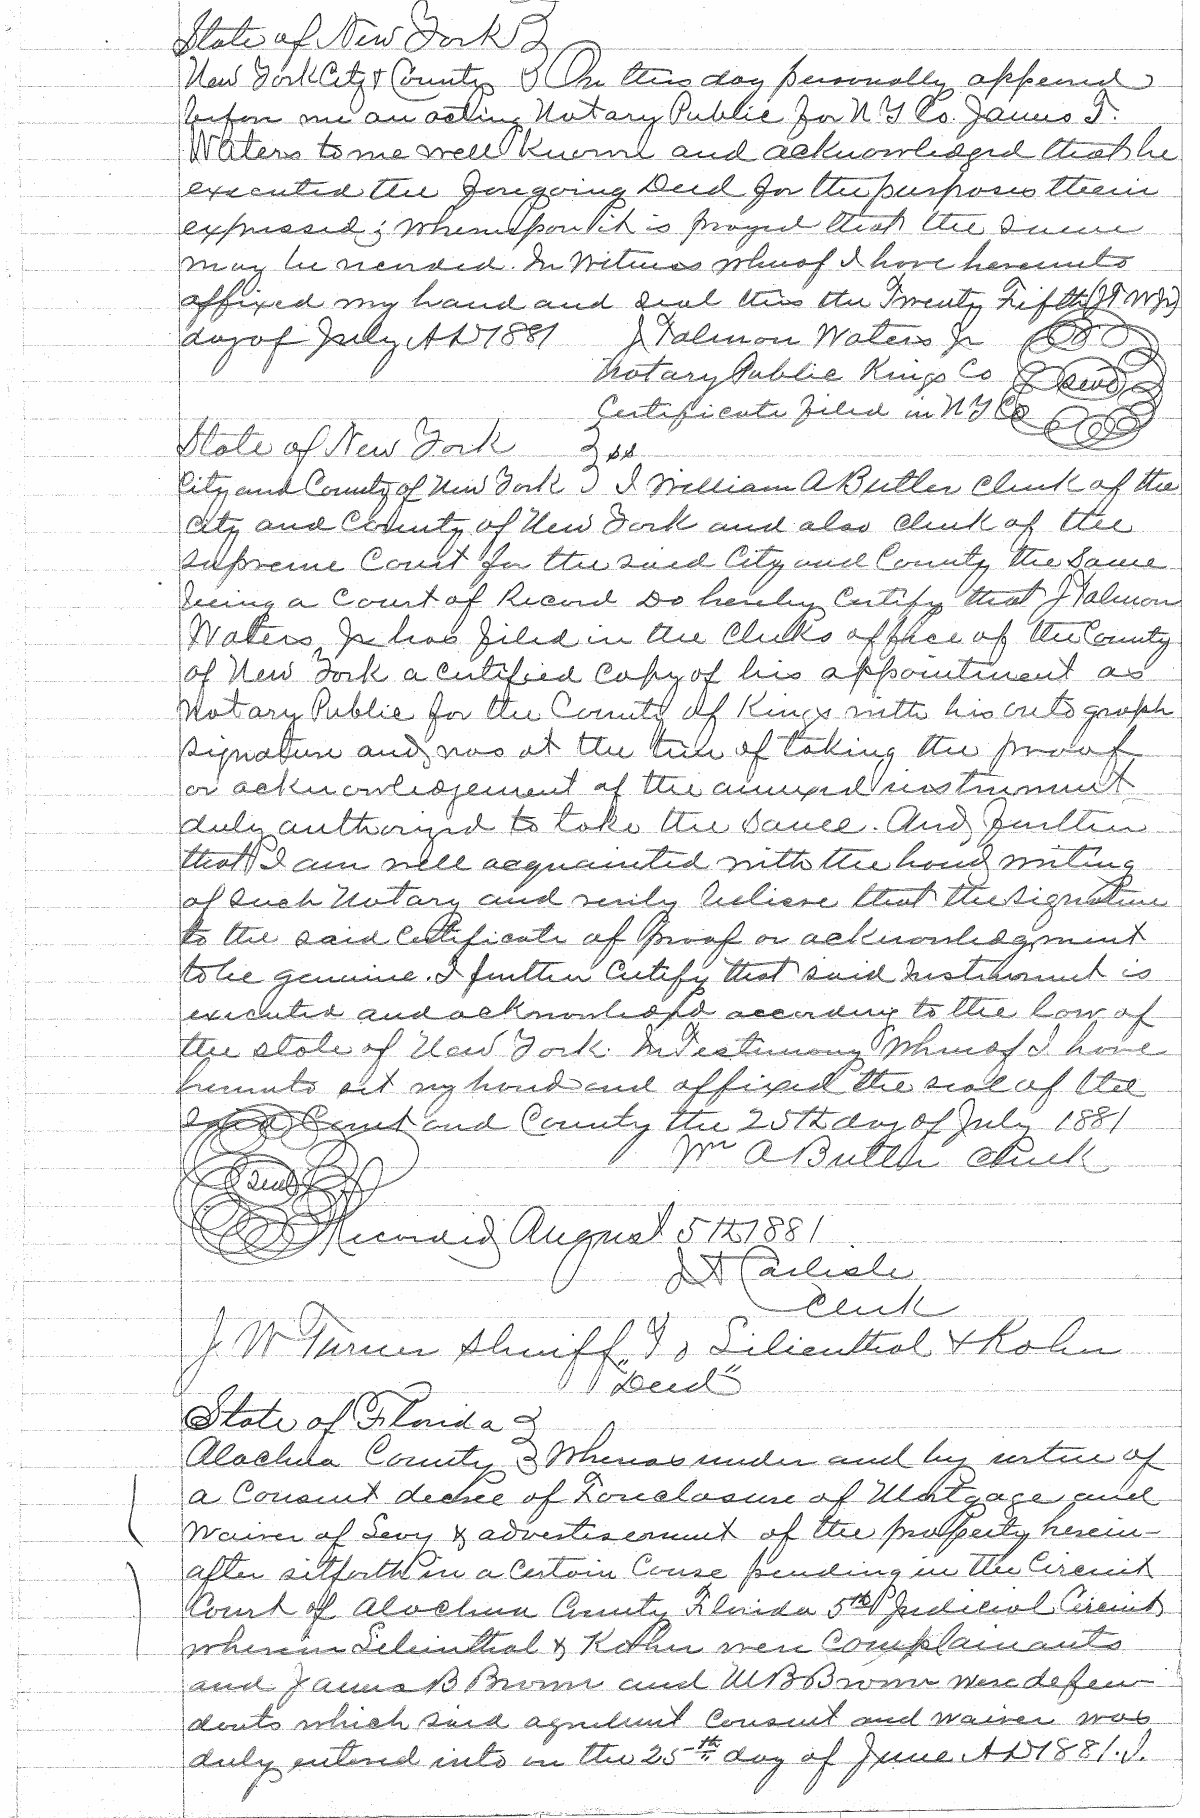 State of New York }
New York City & County } On this day personally appeared
before me an acting Notary Public for N Y Co. James T.
Waters to me well known and acknowledged that he
executed the foregoing Deed for the purposes therin
expressed; whereupon it is prayed that the same
may be recorded. In Witness whereof I have hereunto
affixed my hand and seal this the Twenty Fifth (J T W Jr)
day of July A D 1881 J Talmon Waters Jr
Notary Public Kings Co
seal
Certificate filed in N Y Co
State of New York } ss
City and County of New York } I William A Butler Clerk of the
City and County of New York and also clerk of the
supreme Court for the said City and County the Same
being a Court of Record Do hereby Certify that J Talmon
Waters, Jr has filed in the Clerks office of the County
of New York a certified Copy of his appointment as
Notary Public for the County of Kings with his autograph
signature and was at the time of taking the proof
or acknowledgement of the annexed instrument
duly authorized to take the same. And further
that I am well acquainted with the hand writing
of such Notary and verily believe that the signature
to the said Certificate of proof or acknowledgment
to be genuine. I further Certify that said Instrument is
executed and acknowledged according to the law of
the state of New York. In Testimony Whereof I have
hereunto set my hand and affixed the seal of the
said Court and County the 25th day of July 1881
Wm A Butler Clerk
seal
Recorded August 5th 1881
J A Carlisle
Clerk
J W Turner Sheriff To Lilienthal & Kohn
"Deed"
State of Florida }
Alachua County } Whereas under and by virtue of
a Consent decree of Foreclosure of Mortgage and
Waiver of Levy & advertisement of the property herein-
after sitforth in a Certain Cause pending in the Circuit
Court of Alachua County Florida 5th Judicial Circuit
wherein Lilienthal & Kohn were Complainants
and James B Brown and M B Brown were defen-
dants which said agreement Consent and waiver was
duly entered into on the 25th day of June A D 1881. I.